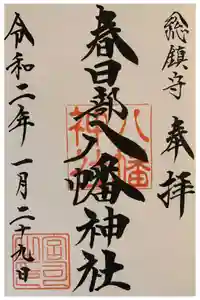 総鎮守
奉拝
春日部八幡神社
八幡
神社
令和二年一月二十九日